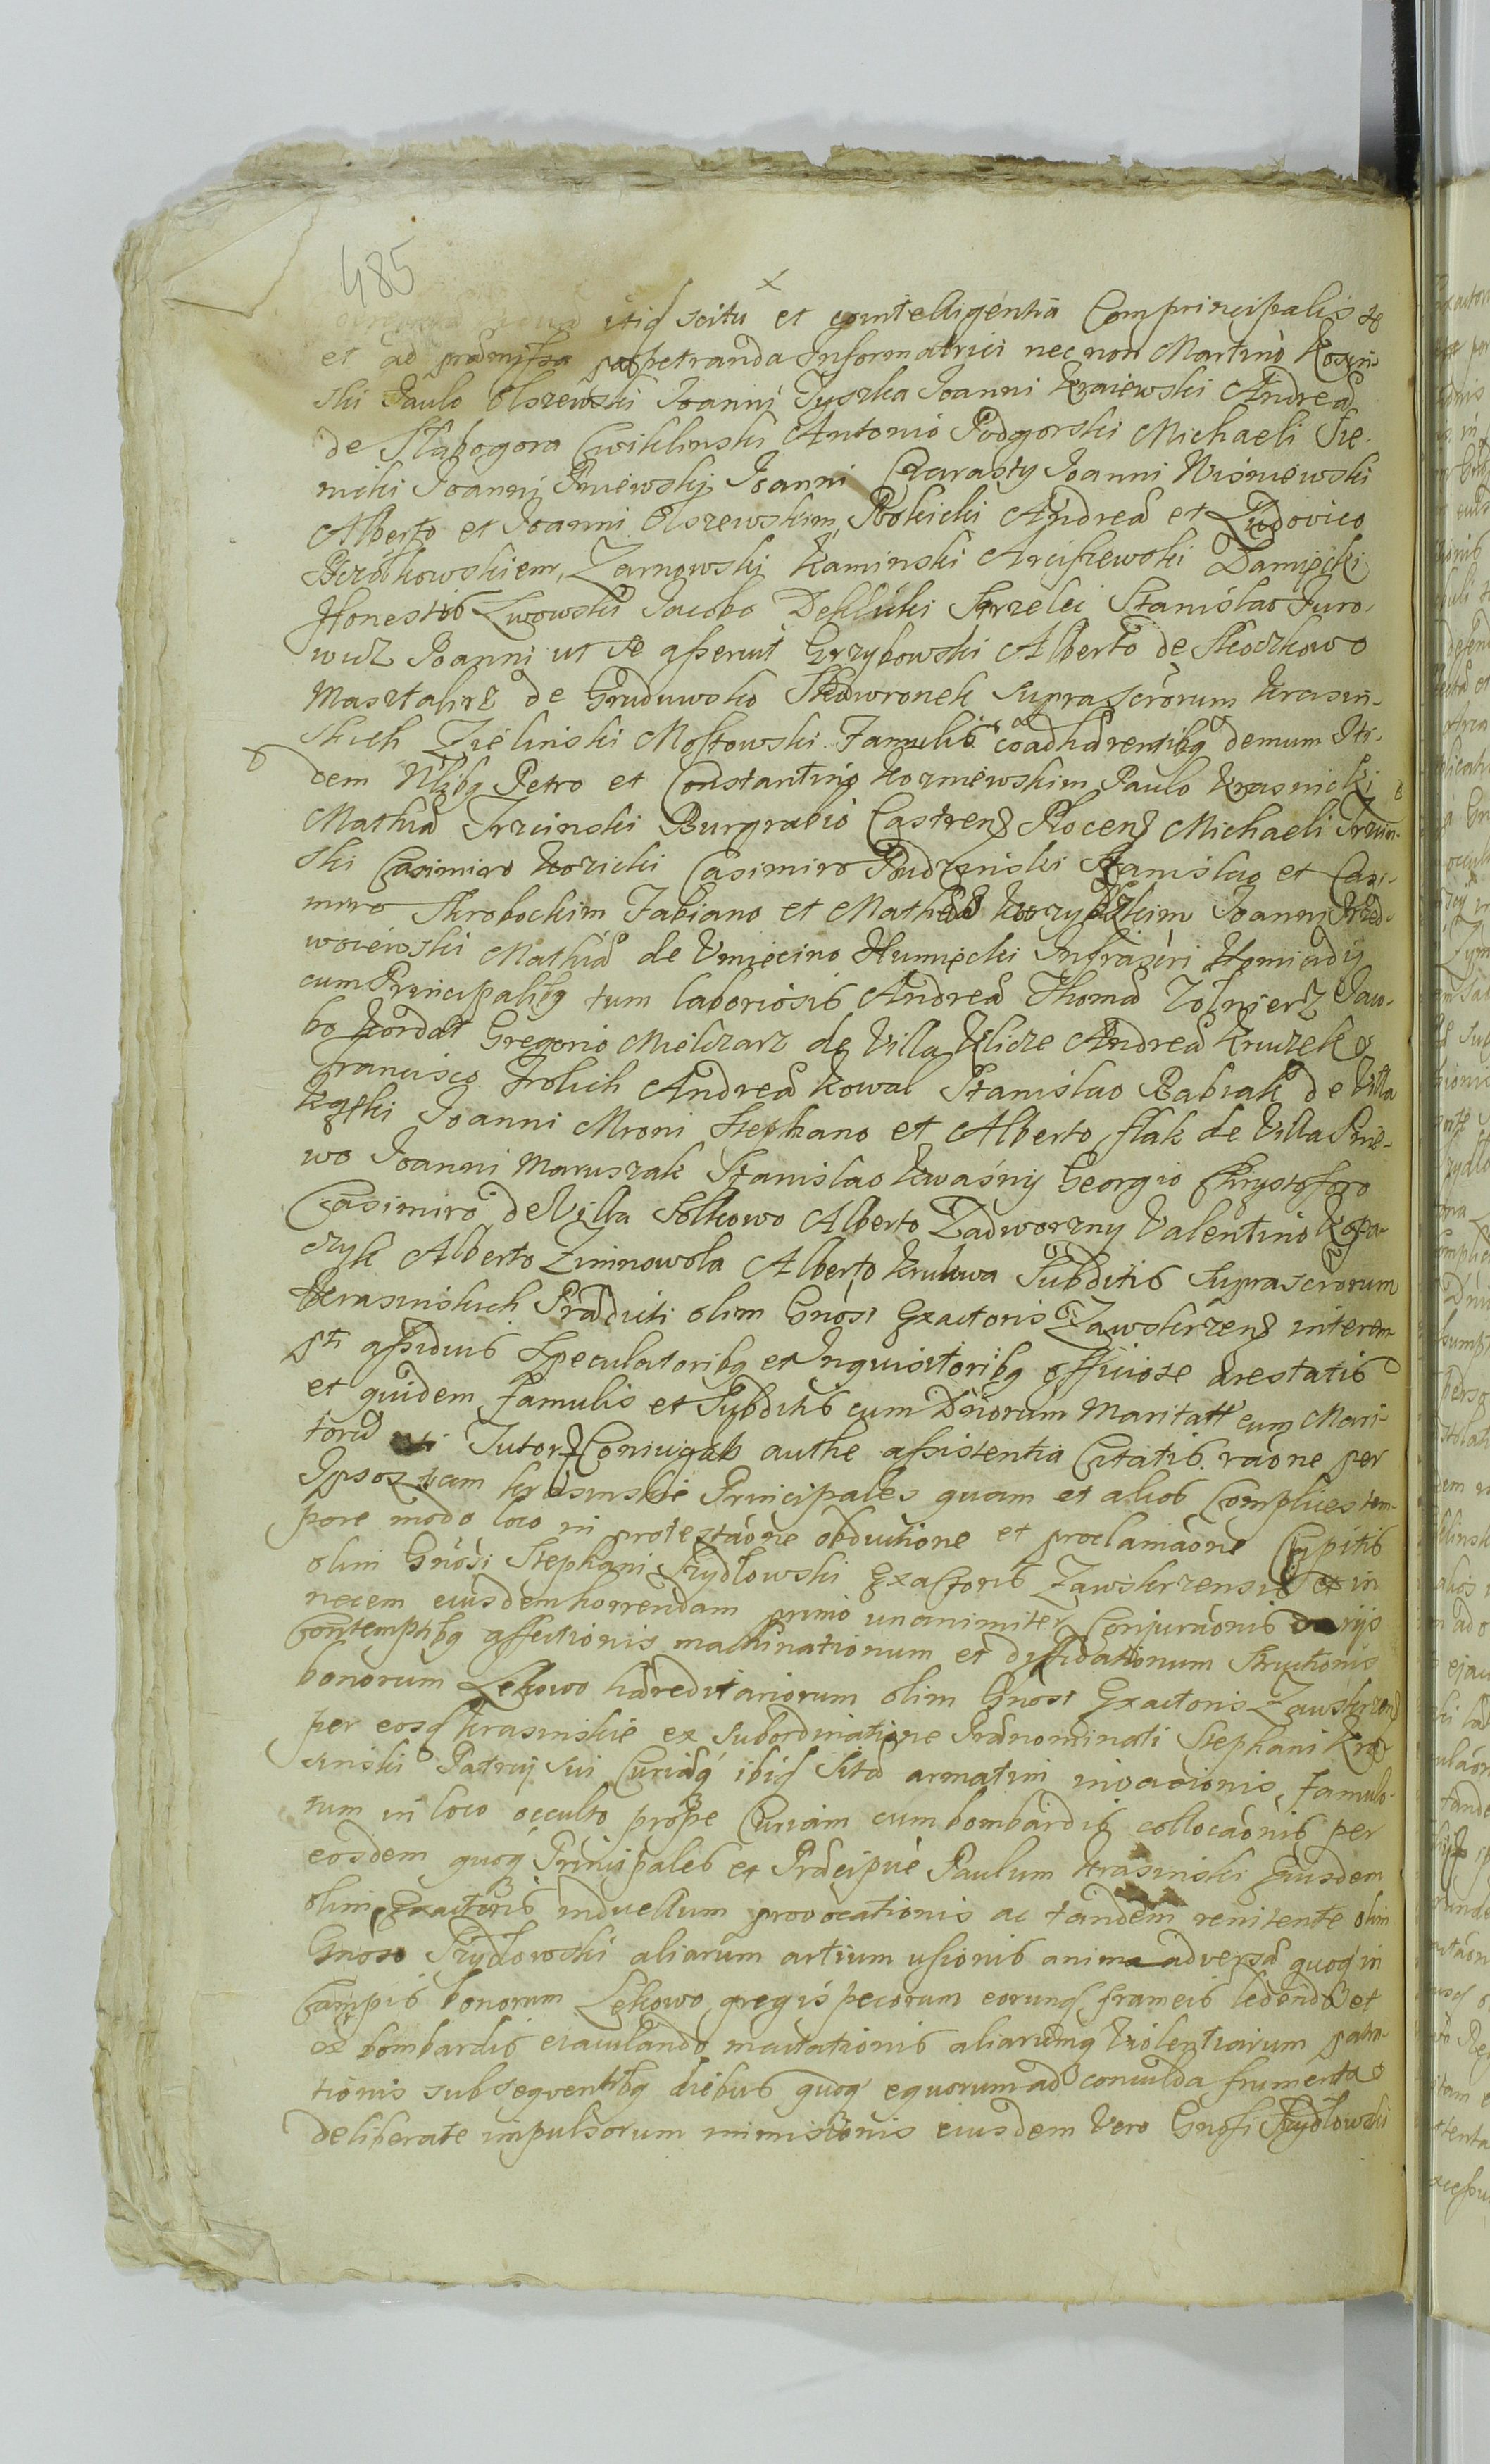 485
itiq scitu et cointelligentia Comprincipalis
et ad præmissa perpetranda Informatrici nec non Martino Kosin-
ski Paulo Olszewski Joanni Tyszka Joanni Kraiewski Andreæ
de Słabogora Cwiklinski Antonio Podgorski Michaeli Sie-
nicki Joanni Pniewski Joanni Czarasty Joanni Wisniewski
Alberto et Joanni Olszewskim Rokicki Andreæ et Ludovico
Bczółkowskiem, Zarnowski Kaminski Arciszewski Damięcki
Honestis Lwowski Jacobo Dekluki Strzelci Stanislao Juro-
wicz Joanni ut se asserunt Grzybowski Alberto de Skoczkowo
Masztalirz de Gruduwsko Skowronek Suprascrorum Krasin-
skich Zielinski Mostowski Famulis coadhærentibq demum Iti-
dem Nlibq Petro et Constantino Kozniewskim Paulo Krasnicki
Mathiæ Trzcinski Burgrabio Castren Plocen Michaeli Trzcin-
ski Casimiro Kozicki Casimiro Rudzenski Stanislao et Casi-
miro Skrobockim Fabiano et Mathæo Joanni Przed-
woiewski Mathiæ de Umięcino Humięcki Infrascri Homicidij
cum Principalibq tum laboriosis Andreæ Thomæ Zołnierz Jaco-
bo Kordas Gregorio Mielczarz de Villa Ulicze Andreæ Kruzek
Francisco Frolich Andreæ Kowal Stanislao Babiak de Villa
Kęski Joanni Mroni Stephano et Alberto flak de Villa Pnie-
wo Joanni Maruszak Stanislao Kwaśny Georgio Chrystoforo
Casimiro de Villa Solkowo Alberto Zadworzny Valentino Kopa-
czyk Alberto Zimnowoła Alberto Krukwa Subditis Suprascrorum
Krasinskich Prædicti olim Gnosi Exactoris Zawskrzen interem-
pti assiduis Speculatoribq et Inquisitoribq officiose arestatis
et quidem Famulis et Subditis cum Dnorum Maritatæ cum Mari-
torum Tutor Coniugalis authe assistentia Citatis. raone per
Ipsos tam Krasinskie Principales quam et alios Complices tem-
pore modo loco in protestaone obductione et proclamaone Expitis
olim Gnosi Stephani Szydłowski Exactoris Zawskrzensis et in
necem eiusdem horrendam primo unanimiter Conjuraonis varijs
Contemptibq affectionis machinationum et diffidationum Structionis
bonorum Lekowo hæreditariorum olim Gnosi Exactoris Zawskrzen
per eosq Krasinskie ex Subordinatione Prænominati Stephani Kra-
sinski Patrui Sui Curiæq ibiq Sitæ armatim invasionis, Famulo-
rum in loco occulto prope Curiam cum bombardis collocaonis per
eosdem quoq Principales et Præcipue Paulum Krasinski Eiusdem
olim Exactoris in duellum provocationis ac tandem renitente olim
Gnoso Szydłowski aliarum artium usionis anima adversæ quoq in
Campis bonorum Lekowo gregis pecorum eorunq frameis lædendo et
ex bombardis eiaculando mactationis aliarumq Violentiarum patra-
tionis subseqventibq diebus quoq equorum ad conculcda frumenta
deliberate impulsorum immissionis eiusdem Vero Gnosi Szydłowski